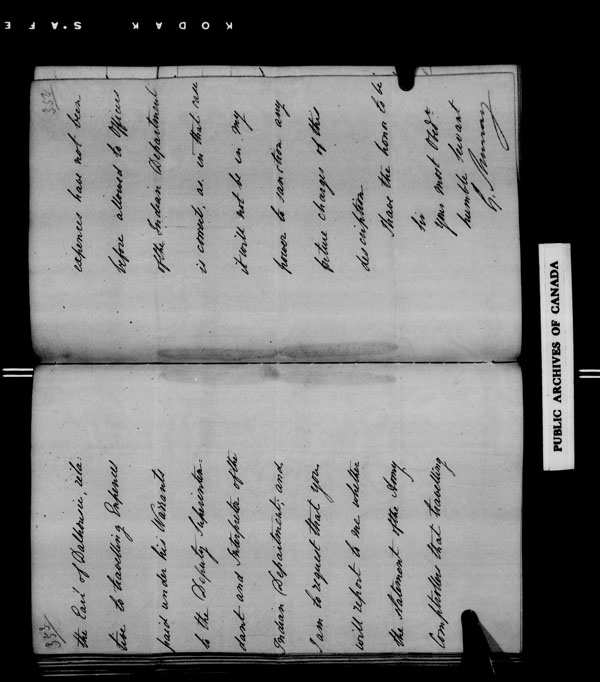 KODAK S'AFE
the Earl of Dalhousie, rela-
tive to travelling Expences
paid under his Warrants
to the Deputy Superinten-
dant and Interpreter of the
Indian Department, and
I am to request that you
will report to me whether
the Statement of the Army
Comptroller that travelling
expences have not been
before allowed to Officers
of the Indian Department
is correct, as in that case
it will not be in my
power to sanction any
future charges of this
description.
I have the honor to be
Sir
Your most Obdt
humble Servant
G. Murray
PUBLIC ARCHIVES OF CANADA